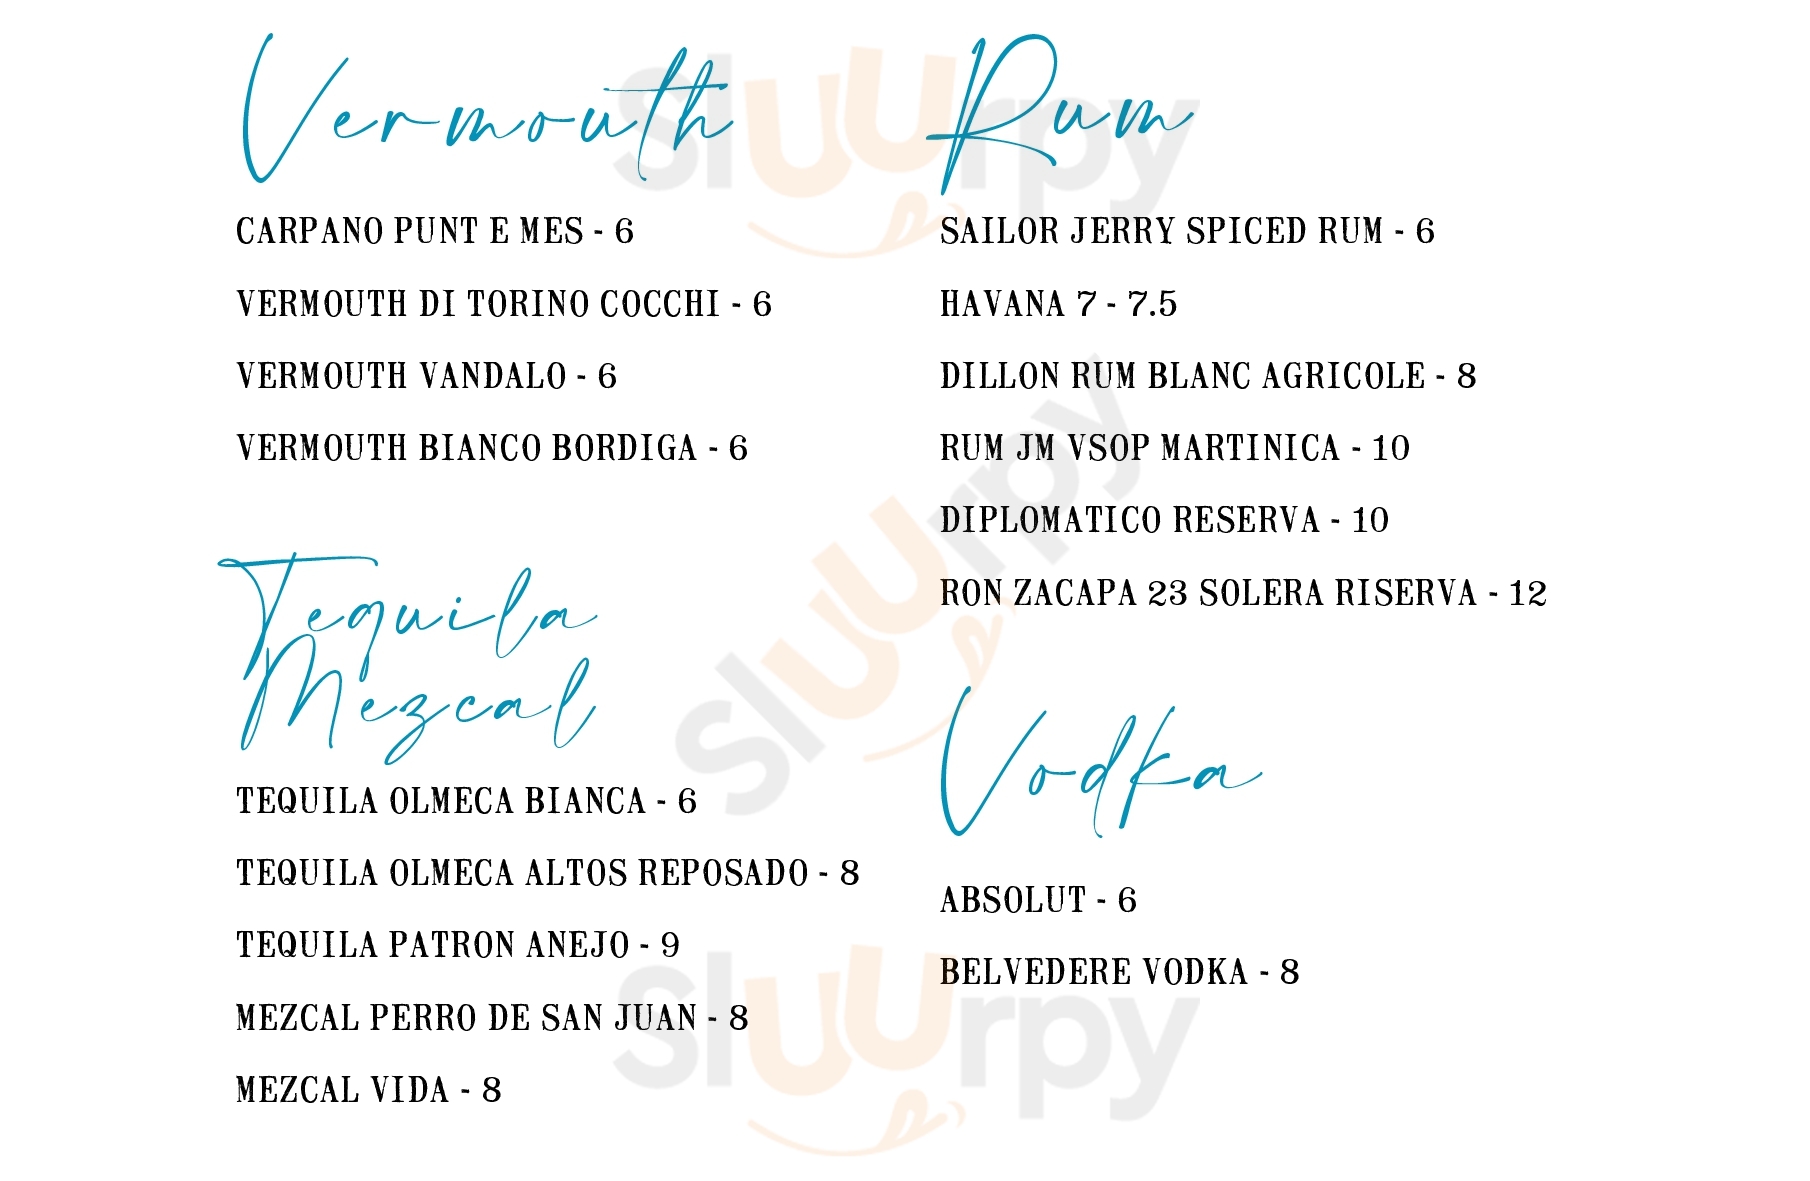 Vermouth
CARPANO PUNT E MES - 6
VERMOUTH DI TORINO COCCHI - 6
VERMOUTH VANDALO - 6
VERMOUTH BIANCO BORDIGA - 6
Tequila
Mezcal
TEQUILA OLMECA BIANCA - 6
TEQUILA OLMECA ALTOS REPOSADO - 8
TEQUILA PATRON ANEJO - 9
MEZCAL PERRO DE SAN JUAN - 8
MEZCAL VIDA - 8
Rum
SAILOR JERRY SPICED RUM - 6
HAVANA 7 - 7.5
DILLON RUM BLANC AGRICOLE - 8
RUM JM VSOP MARTINICA - 10
DIPLOMATICO RESERVA - 10
RON ZACAPA 23 SOLERA RISERVA - 12
Vodka
ABSOLUT - 6
BELVEDERE VODKA - 8
Sluurpy
Sluurpy
Sluurpy